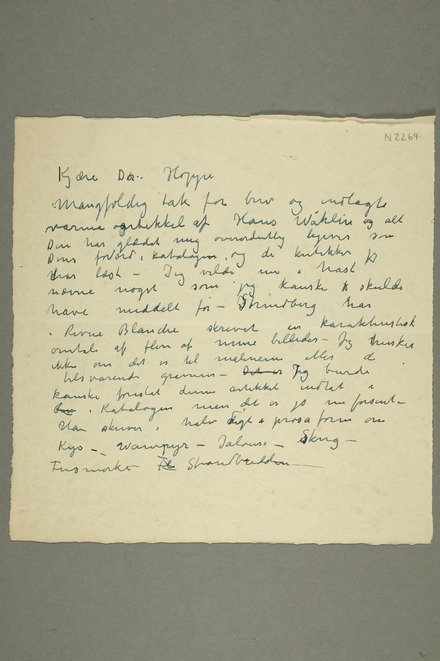 N 2269
Kjære Dr. Hoppe
Mangfoldig tak for brev og indlagte
varme artikkel af Hans Wåhlin og alt
Den har glædet mig overordentlig ligesom
Deres forord i katalogen, og de kritikker jeg
har læst – Jeg vilde nu i hast
nævne noget som jeg kanske skulde
have meddelt før – Strindberg har
i Revue Blanche skrevet en karakteristisk
omtale af flere af mine billeder – Jeg husker
ikke om det er til malerierne eller de
tilsvarende gravurer – Det er Jeg burde
kanske foreslat denne artikkel indtat i
Katalogen men det er jo nu forsent –
Han skriver i halv digt i prosa form om
Kys – Wampyr – Jalousi – Skrig –
Til Strandbredden —